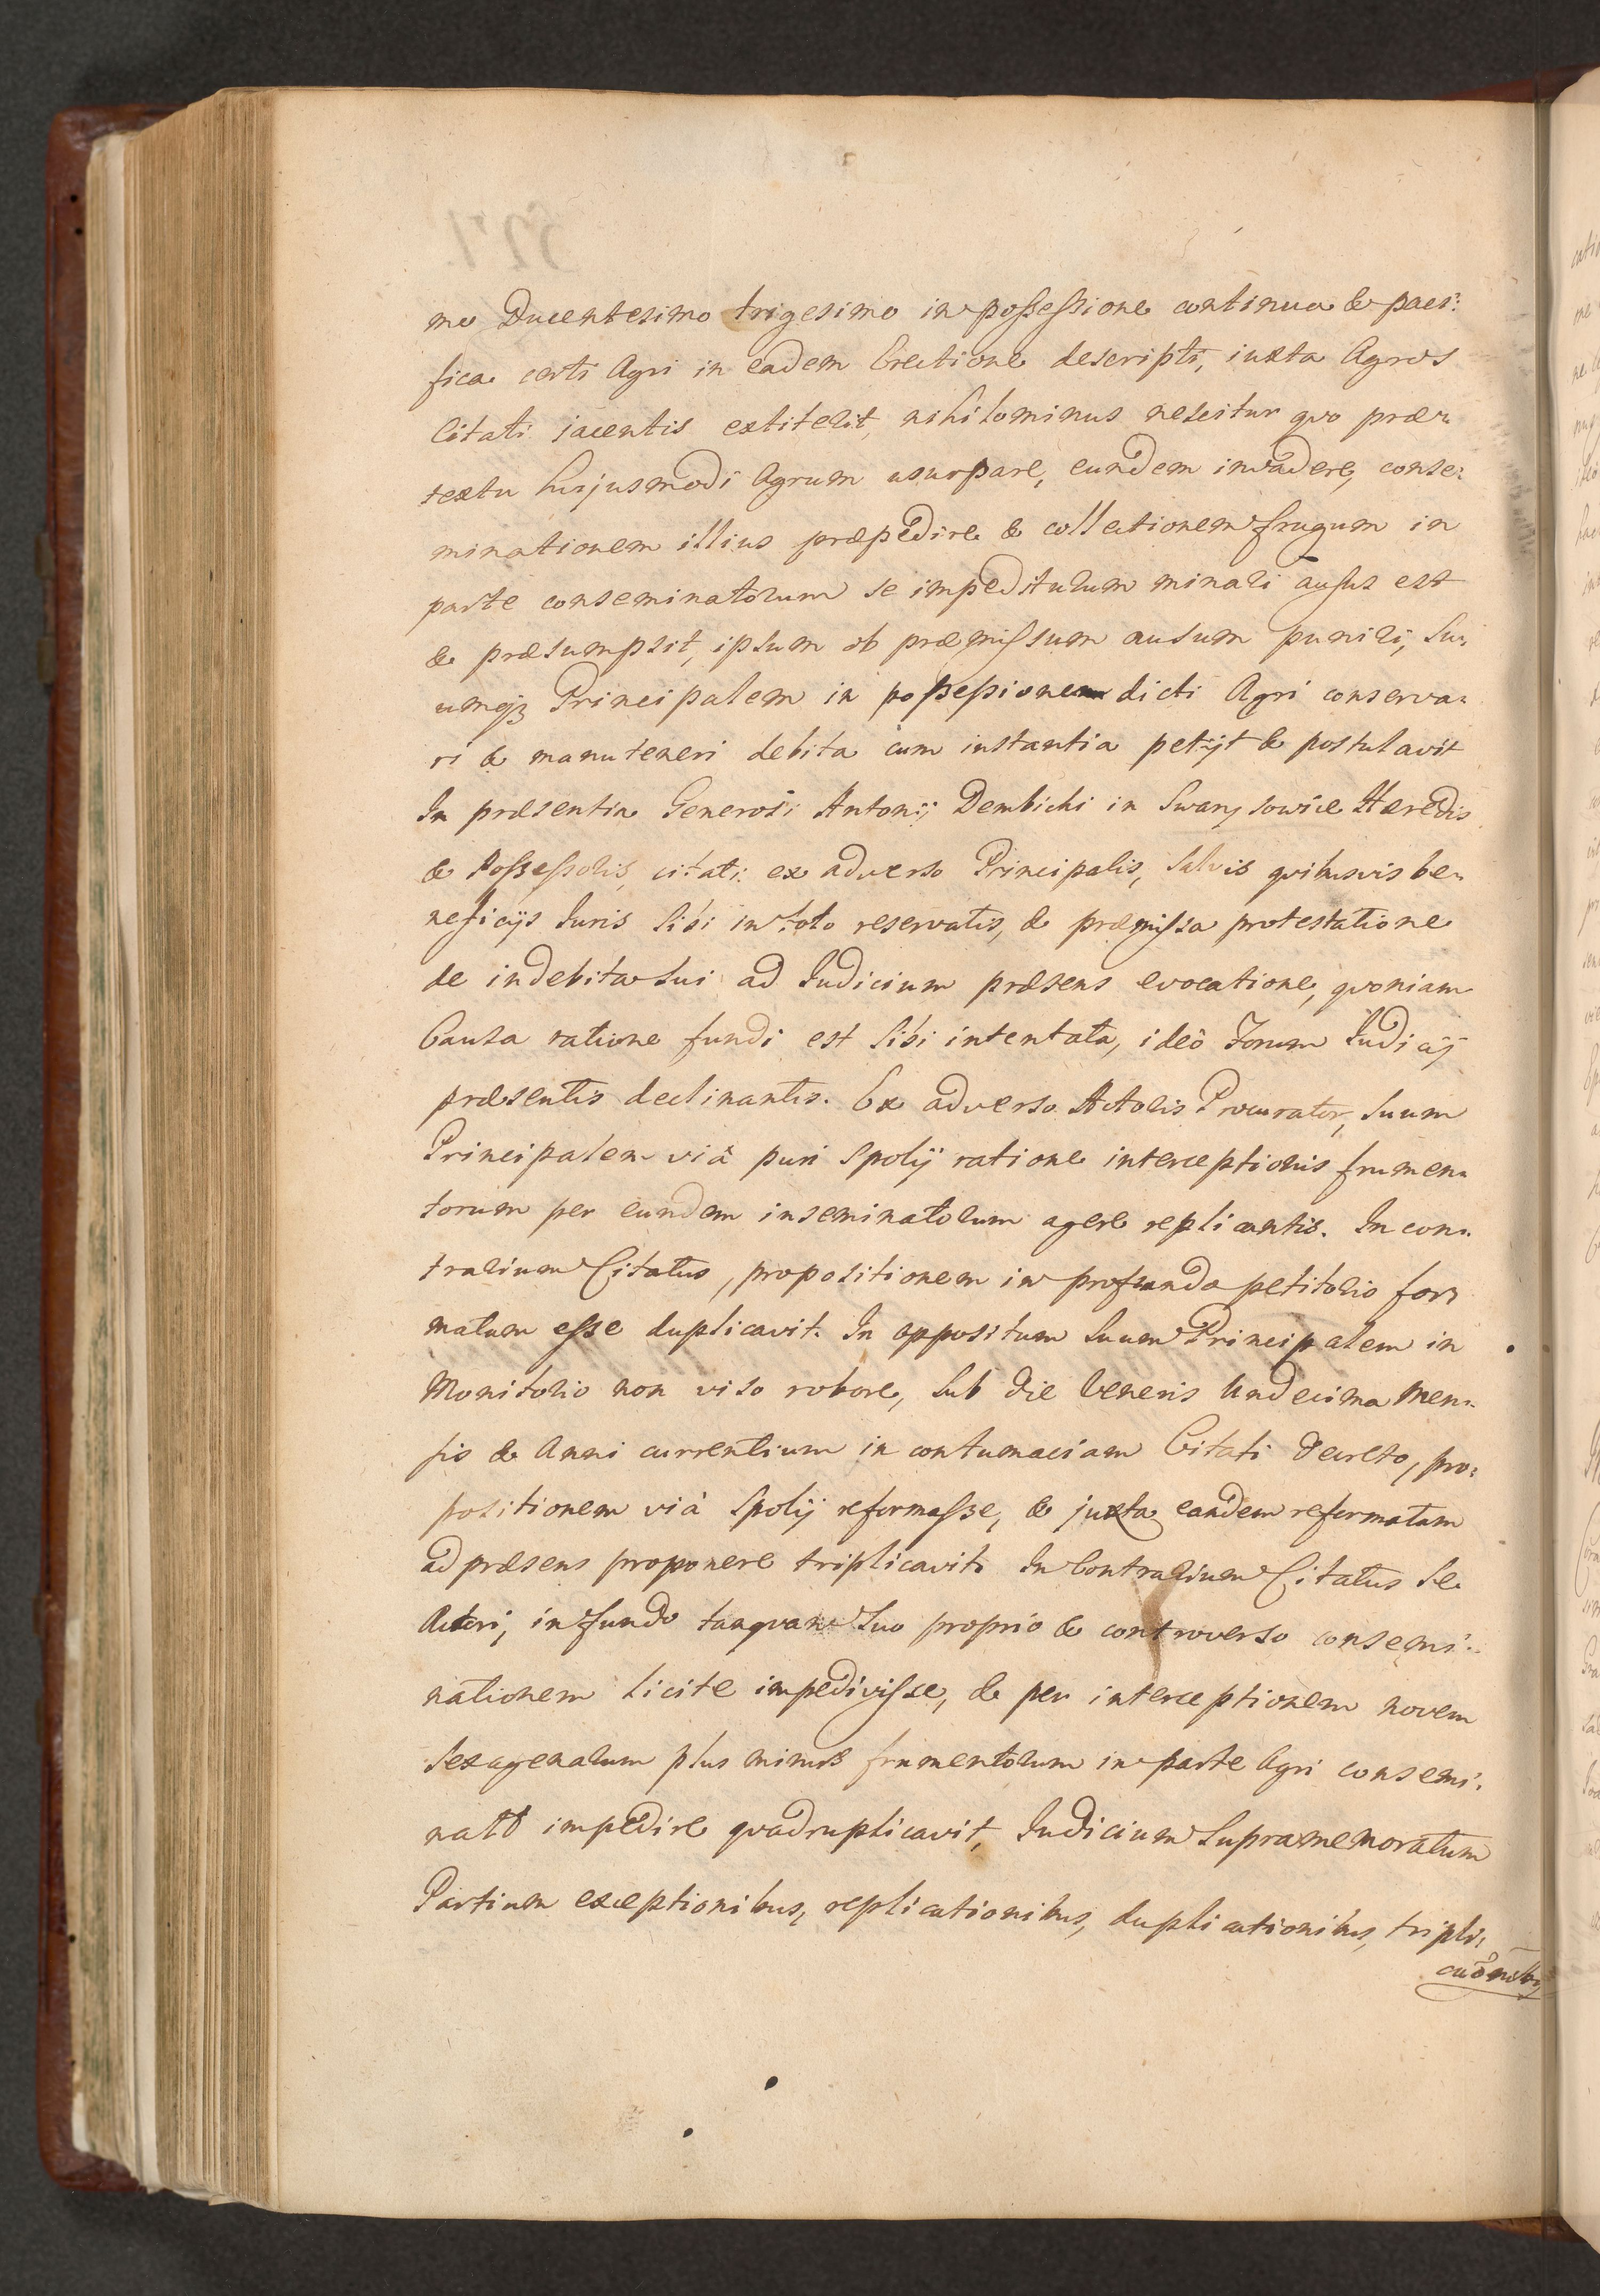 mo Ducentesimo trigesimo in possessione continua & paci:
fica certi Agri in eadem Erectione descripti, iuxta Agros
Citati jacentis extiterit, nihilominus nescitur quo præ:
textu hujusmodi Agrum usurpare, eundem invadere, conse:
minationem illius præpedire & collectionem frugum in
parte conseminatorum se impediturum minari ausus est
& præsumpsit, ipsum ob præmissum ausum puniri, Su:
umq3 Principalem in possessionem dicti Agri conserva:
ri & manuteneri debita cum instantia petijt & postulavit
In præsentia Generosi Antonij Dembicki in Swarysowice Hæredis
& Possessoris, citati ex adverso Principalis, Salvis quibusvis be:
neficijs Juris Sibi in toto reservatis, & præmissa protestatione
de indebita Sui ad Judicium præsens evocatione, quoniam
Causa ratione fundi est Sibi intentata, ideò Forum Judicij
præsentis declinantis. Ex adverso Actoris Procurator, Suum
Principalem viâ puri Spolij ratione interceptionis frumen:
torum per eundem inseminatorum agere replicantis. In con:
trarium Citatus, propositionem in profundo petitorio for:
matam esse duplicavit. In oppositum Suum Principalem in
Monitorio non viso robore, Sub die Veneris Undecima Men:
sis & Anni currentium in contumaciam Citati Decreto, pro:
positionem viâ Spolij reformasse, & juxta eandem reformatam
ad præsens proponere triplicavit. In Contrarium Citatus Se
Actori, in fundo tanquam Suo proprio & controverso consemi:
nationem licite impedivisse, & per interceptionem novem
Sexagenarum plus minus frumentorum in parte Agri consemi:
nato impedire quadruplicavit, Judicium Supramemoratum
Partium exceptionibus, replicationibus, duplicationibus, tripli:
caõnibus